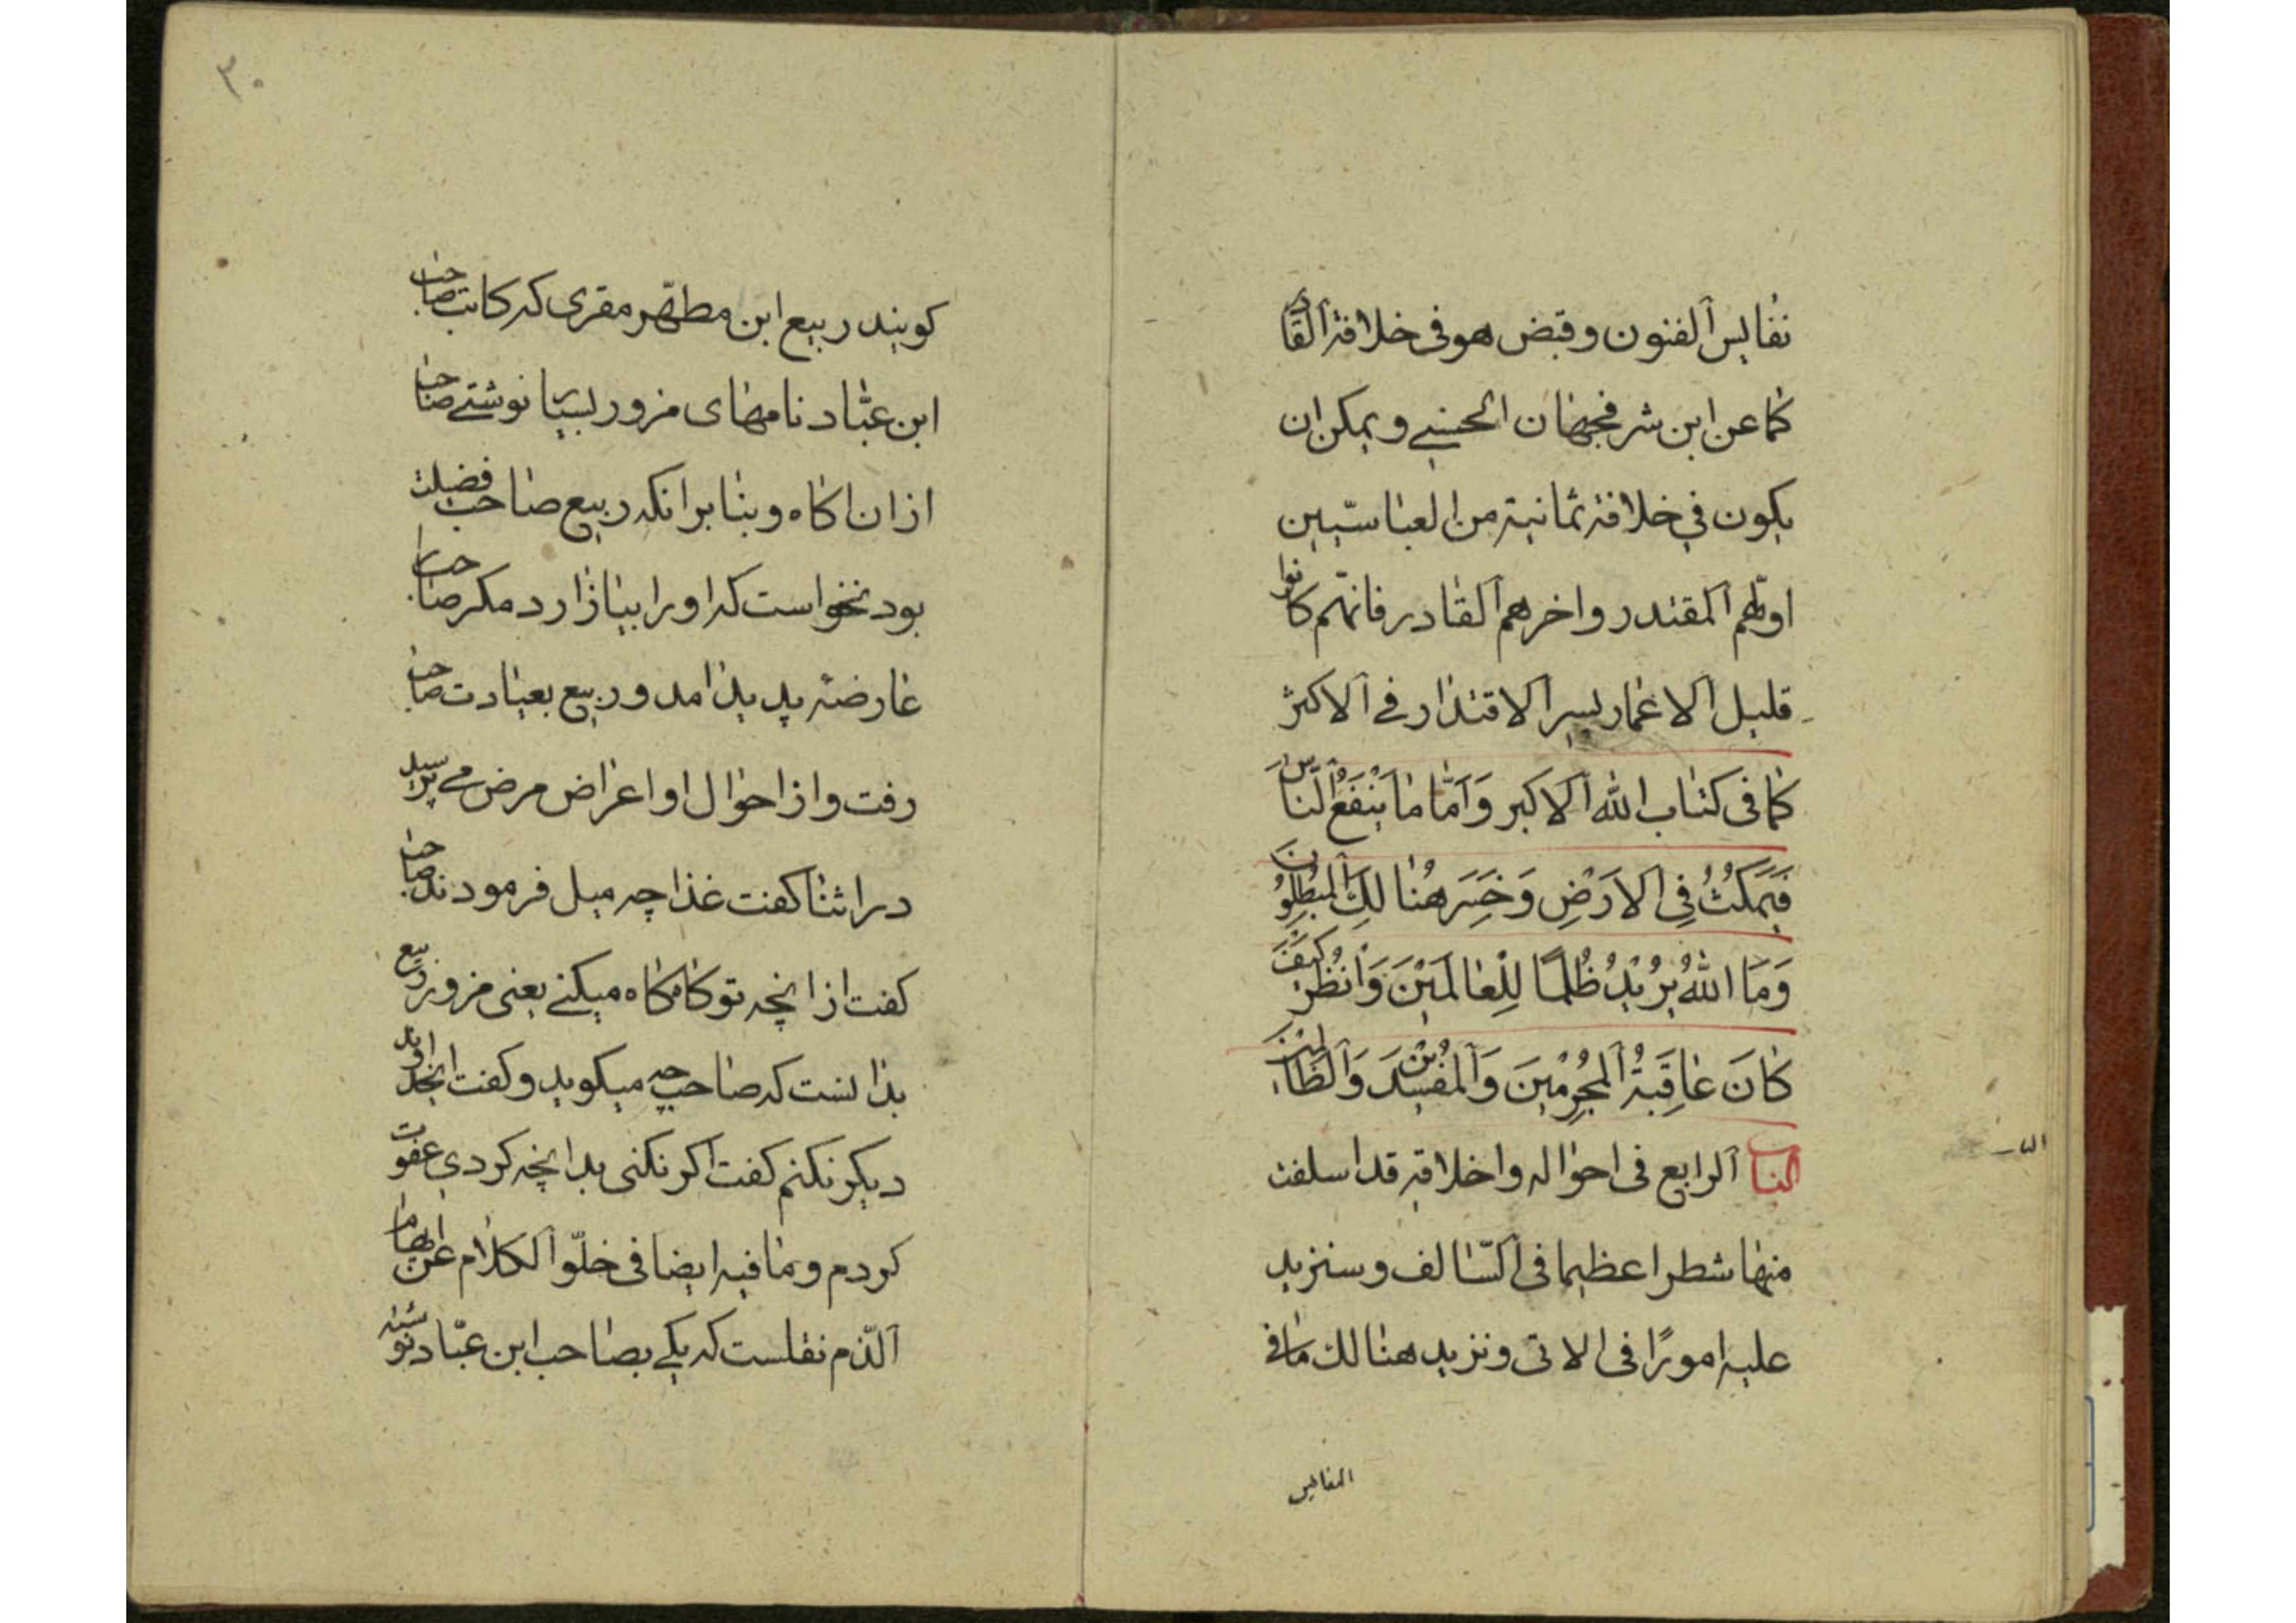 نفایس الفنون و قبض هو فی خلافة القادر
کما عن ابن شرفجهان الحسینی و یمکن ان
یکون فی خلافة ثمانیة من العباسیین
اولهم المقتدر و اخرهم القادر فانهم کانوا
قلیل الاعمار یسیر الاقتدار فی الاکثر
کما فی کتاب الله الاکبر وَاَمّا مٰا یَنْفَعُ النّاسَ
فَیَمْکُثُ فِی الاَرْضِ وَخَسِرَ هُنٰا لِکَ الْمُبْطِلُونَ
وَمَا اللهُ یُرِیْدُ ظُلْمًا لِلْعٰالَمیْنَ وَاْنْظُرْ کَیْفَ
کٰانَ عٰاقِبَةُ الْمُجْرِمْینَ وَالْمُفْسِدینَ وَالظّالِمینَ
الباب الرابع فی احواله و اخلاقه قد اسلفت
منها شطرا عظیما فی السّالف و سنزید
علیه امورًا فی الاتی و نزید هنالک ما فی
النفایس
۳۰
کویند ربیع ابن مطهّر مقری که کاتب صاحب
ابن عبّاد نامهای مزور بسیار نوشتی صاحب
از ان اکاه و بنا بر انکه ربیع صاحب فضیلت
بود نخواست که او را بیازارد مکر صاحب را
عارضه پدید امد و ربیع بعیادت صاحب
رفت و از احوال او اعراض مرض می پرسید
در اثنا کفت غذا چه میل فرمودند صاحب
کفت از انچه تو کاه کاه میکنی یعنی مزور ربیع
بدانست که صاحب چه میکوید و کفت
دیکر نکنم کفت اکر نکنی بدانچه کردی عفوت
کردم و مما فیه ایضا فی خلوّ الکلام عن ایهام
الذّم نقلست که یکی بصاحب ابن عبّاد نوشته